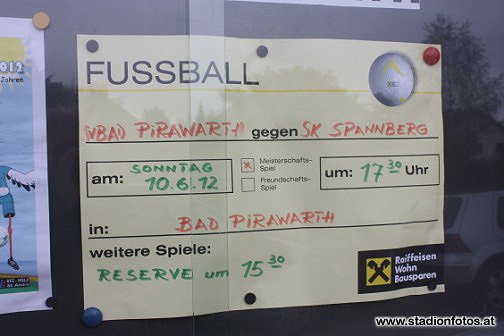 2012
Jahren
FUSSBALL
BAD PIRAWARTH gegen SK SPANNBERG
am: SONNTAG 10.6.12
x Meisterschafts-Spiel
Freundschafts-Spiel
um: 17 30 Uhr
in: BAD PIRAWARTH
weitere Spiele:
RESERVE um 15 30
Raiffeisen
Wohn
Bausparen
www.stadionfotos.at